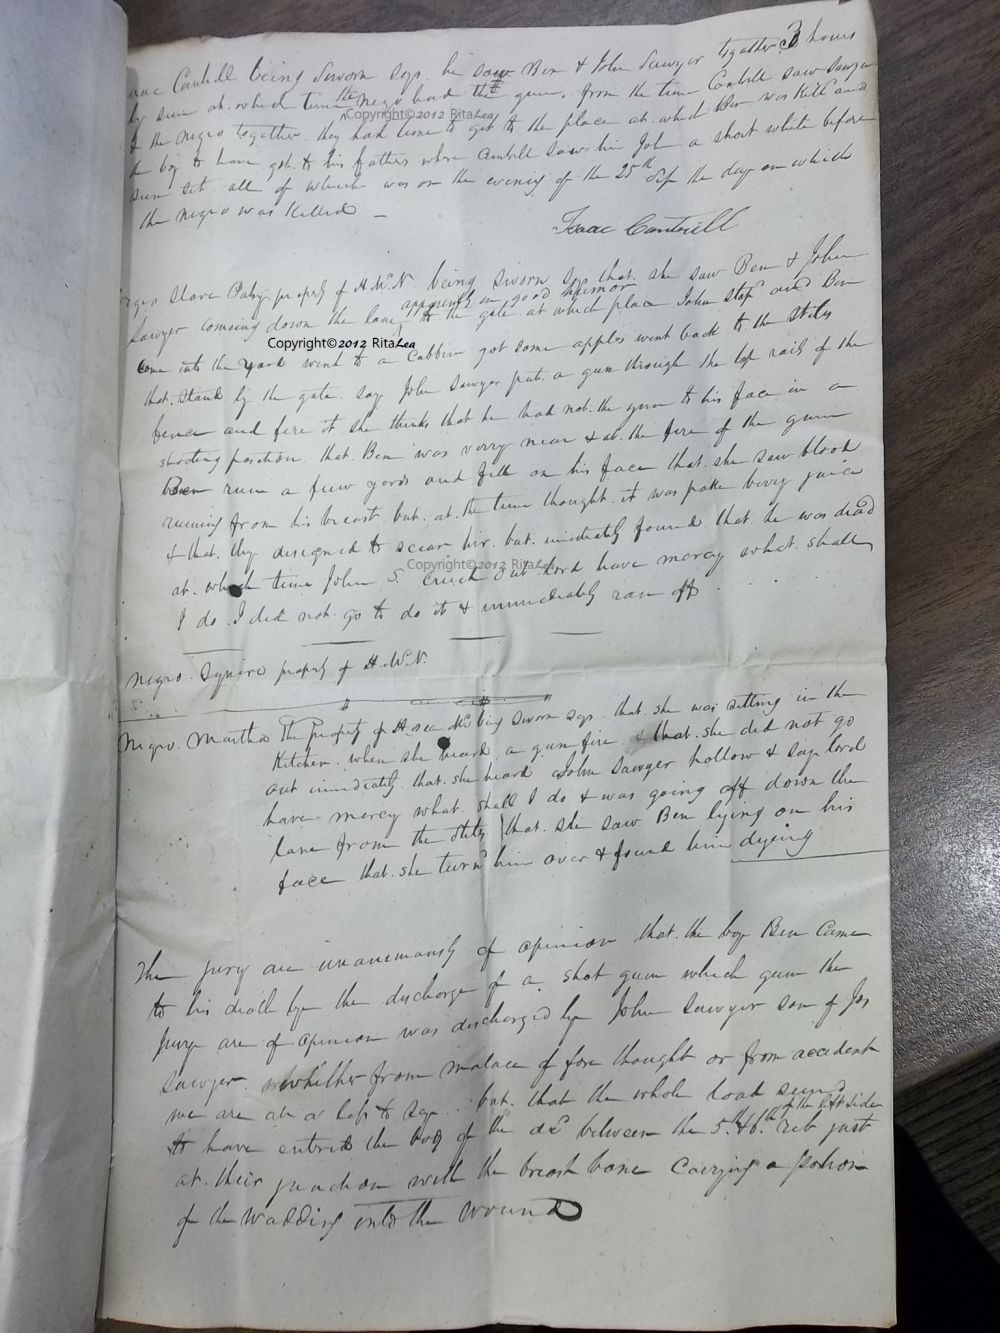 Isaac Cantrill being Sworn says he saw Ben & John Sawyer together 3 hours
by sun at which time the Negro had the gun, from the time Cantrill saw Sawyer
& the negro together they had time to get to the place at which Ben was kill'd and
the boy to have got to his fathers where Cantrill saw him John a short while before
sun set all of which was on the evening of the 25th Sep the day on which
the negro was killed —
Isaac Cantrill
Negro Slave Patsy property of H.McN. being sworn says that she saw Ben & John
Sawyer comeing down the lane apparently in good humor to the gate at which place John stop'd and Ben
come into the yard went to a Cabbin got some apples went back to the Stiles
that stand by the gate say John Sawyer put a gun through the top rails of the
fence and fire it she thinks that he had not the gun to his face in a
shooting position that Ben was verry near & at the fire of the gun
Ben run a fiew yards and fell on his face that she saw blood
runing from his breast but at the time thought it was poke berry juice
& that they designed to scear hir but imediately found that he was dead
at which time John S. cried out Lord have mercy what shall
I do I did not go to do it & immediately ran off
Negro Squire property of H.McN.
Negro Martha the Property of being sworn says that she was sitting in the
Kitchen when she heard a gun fire & that she did not go
out imediately that she heard John Sawyer hollow & say lord
have mercy what shall I do & was going off down the
lane from the Stiles that she saw Ben lying on his
face that she turn'd him over & found him dying
The jury are unanemously of opinion that the boy Ben Came
to his death by the discharge of a shot gun which gun the
jury are of opinion was discharged by John Sawyer son of Jas
Sawyer whither from malace of fore thought or from accident
we are at a loss to say but that the whole load seems
to have entered the body of the de'd between the 5th & 6th rib of the left side just
at their junction with the breast bone Carrying a potion
of the wadding into the wound
Copyright©2012 RitaLea
Copyright©2012 RitaLea
Copyright©2012 RitaLea